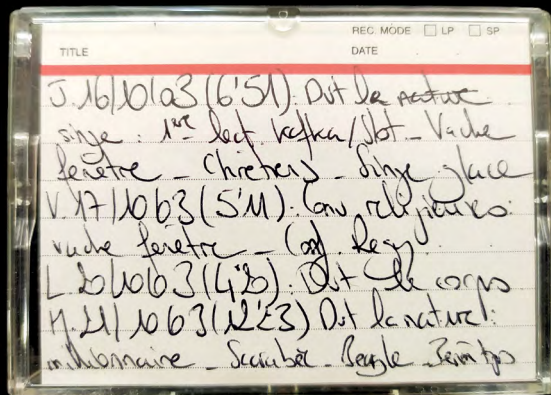 REC. MODE LP SP
TITLE DATE
J. 16/10/03 (6'51): Dut la nature
singe : 1ère lect. Kafka/Slot - Vache
fenêtre - Chrétiens - Singe glace
V. 17/10/03 (5'11): Conv religieuses:
vache fenêtre -
L. 20/10/03 (4'20): Dut le corps
M. 21/10/03 (12'23) Dut la nature:
millionnaire - - Beagle -